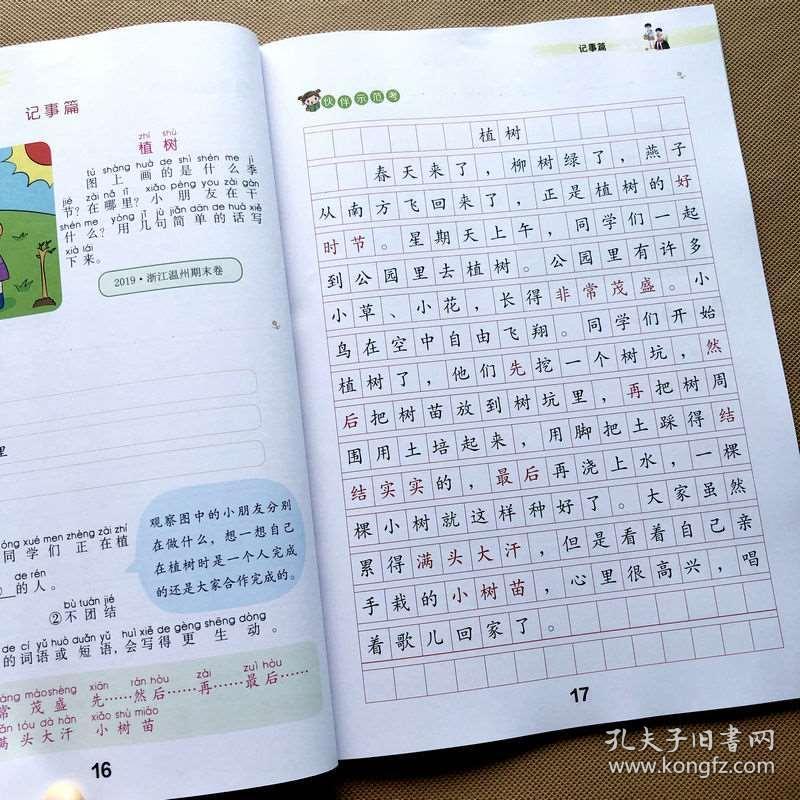 记事篇
zhí shù
植树
tú shàng huà de shì shén me jì
图上画的是什么季
jié zài nǎ lǐ xiǎo péng you zài gàn
节?在哪里?小朋友在干
shén me yòng jǐ jù jiǎn dān de huà xiě
什么?用几句简单的话写
xià lái
下来。
2019·浙江温州期末卷
里
óng xué men zhèng zài zhí
同学们正在植
de rén
的人。
bù tuán jié
②不团结
de cí yǔ huò duǎn yǔ huì xiě de gèng shēng dòng
的词语或短语,会写得更生动。
观察图中的小朋友分别
在做什么,想一想自己
在植树时是一个人完成
的还是大家合作完成的。
áng mào shèng xiān rán hòu zài zuì hòu
常茂盛 先……然后……再……最后……
ǎn tóu dà hàn xiǎo shù miáo
满头大汗 小树苗
16
记事篇
伙伴示范考
植树
春天来了,柳树绿了,燕子
从南方飞回来了,正是植树的好
时节。星期天上午,同学们一起
到公园里去植树。公园里有许多
小草、小花,长得非常茂盛。小
鸟在空中自由飞翔。同学们开始
植树了,他们先挖一个树坑,然
后把树苗放到树坑里,再把树周
围用土培起来,用脚把土踩得结
结实实的,最后再浇上水,一棵
棵小树就这样种好了。大家虽然
累得满头大汗,但是看着自己亲
手栽的小树苗,心里很高兴,唱
着歌儿回家了。
17
孔夫子旧书网
www.kongfz.com